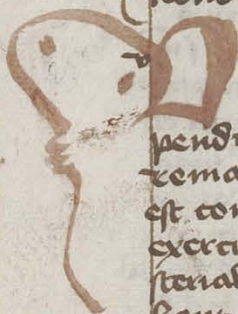 pend
rema
est con
exerci
sterial